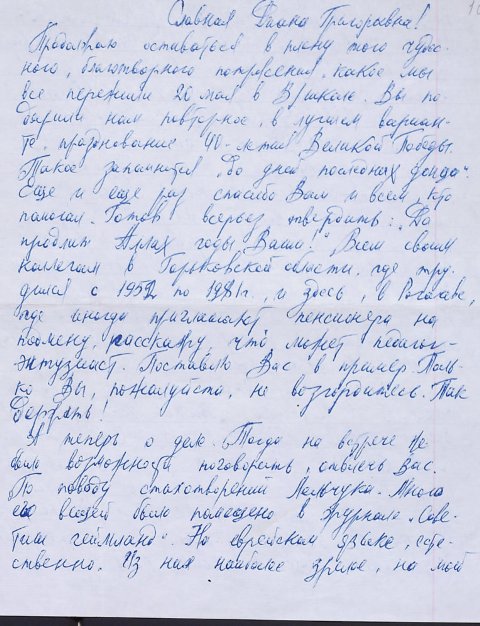 Славная Диана Григорьевна!
Продолжаю оставаться в плену того чудес-
ного, благотворного потрясения, какое мы
все пережили 20 мая в В/школе. Вы по-
дарили нам повторное, в лучшем вариан-
те, празднование 40-летия Великой Победы.
Такое запомнится „до дней последних донца".
Еще и еще раз спасибо Вам и всем, кто
помогал. Готов всерьез твердить: „Да
продлит Аллах годы Ваши." Всем своим
коллегам в Горьковской области, где тру-
дился с 1952 по 1981 г., и здесь, в Рогачеве,
где иногда приглашают пенсионера на
подмену, расскажу, что может педагог-
энтузиаст. Поставлю Вас в пример. Толь-
ко Вы, пожалуйста, не возгордитесь. Так
держать!
А теперь о деле. Тогда на встрече не
было возможности поговорить, отвлечь Вас.
По поводу стихотворений Мальчука. Много
его вещей было помещено в журнале „Сове-
тиш геймланд". На еврейском языке, есте-
ственно. Из них наиболее зрелое, на мой